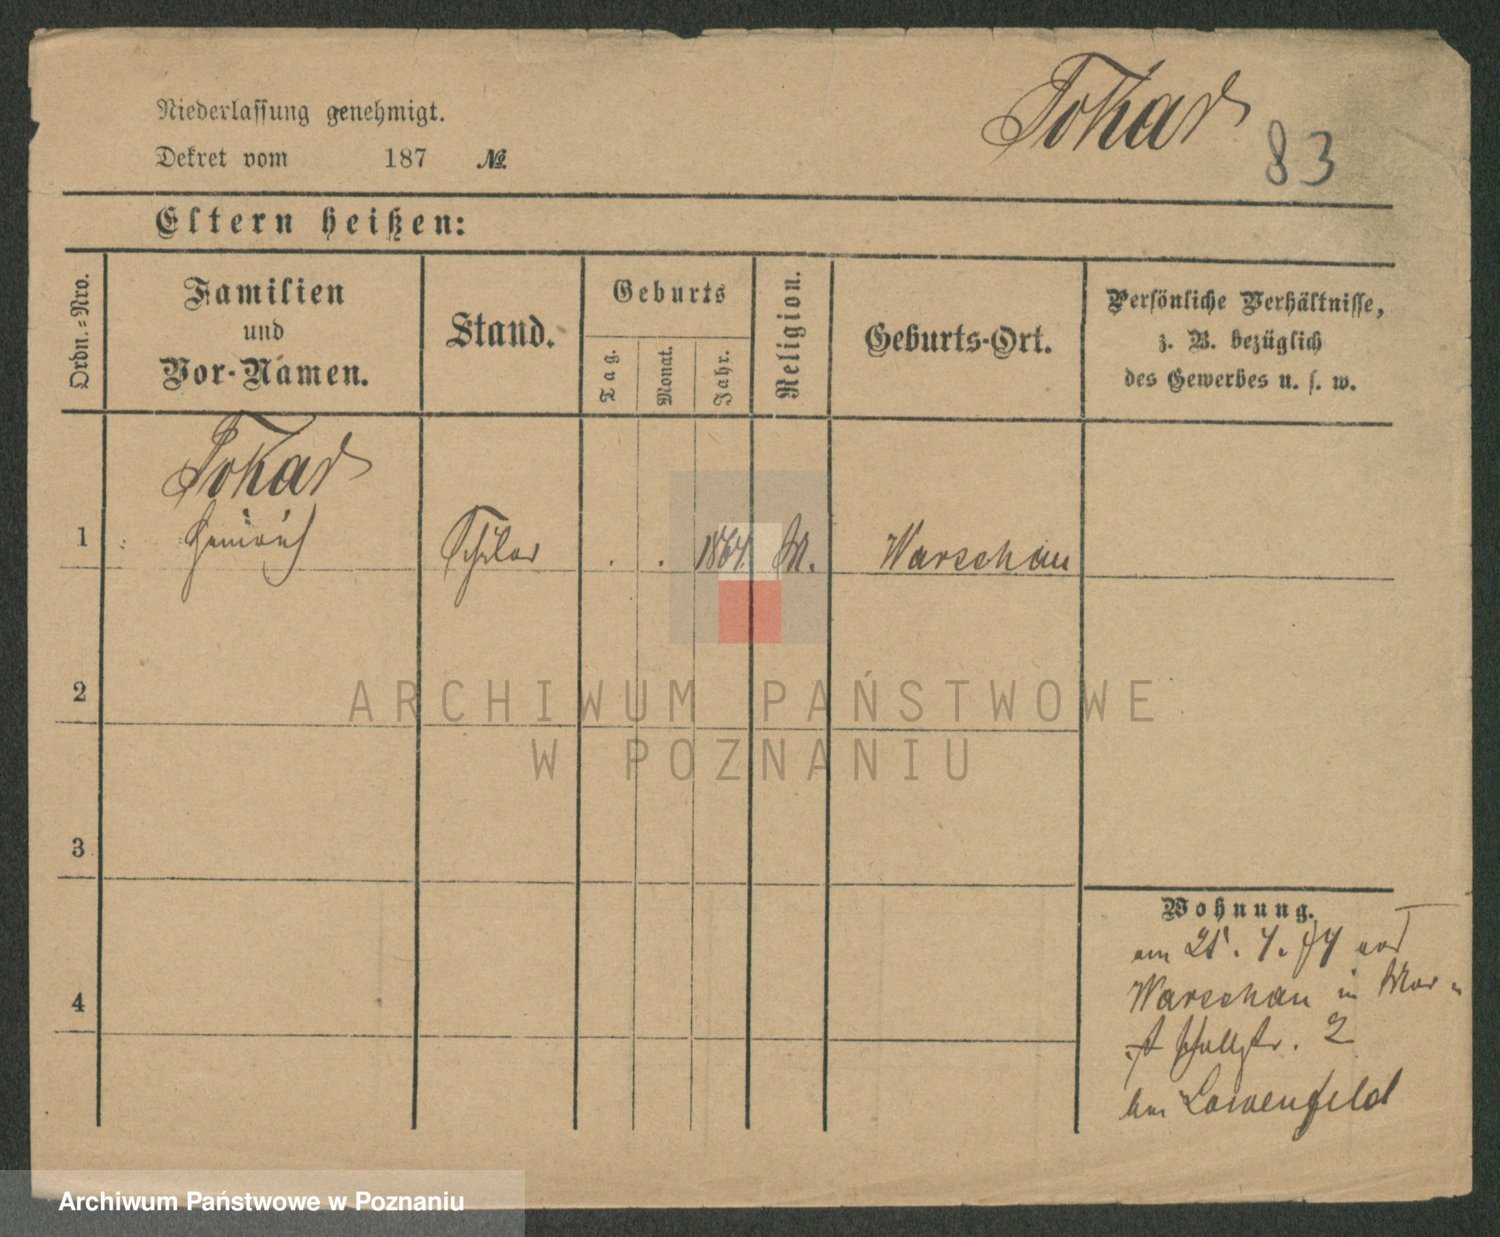 Tokar
83
Niederlassung genehmigt.
Dekret vom 187 №
Eltern heißen:
Ordn.=Nro.
Familien
und
Vor-Namen.
Stand.
Geburts
Tag.
Monat.
Jahr.
Religion.
Geburts-Ort.
Persönliche Verhältnisse,
z. B. bezüglich
des Gewerbes u. s. w.
Tokar
1 Heinrich Schüler . . 1864 M. Warschau
2
3
4
Wohnung.
am 25. 4. 74
Warschau in
2
bei Lowenfeld
ARCHIWUM PAŃSTWOWE
W POZNANIU
Archiwum Państwowe w Poznaniu